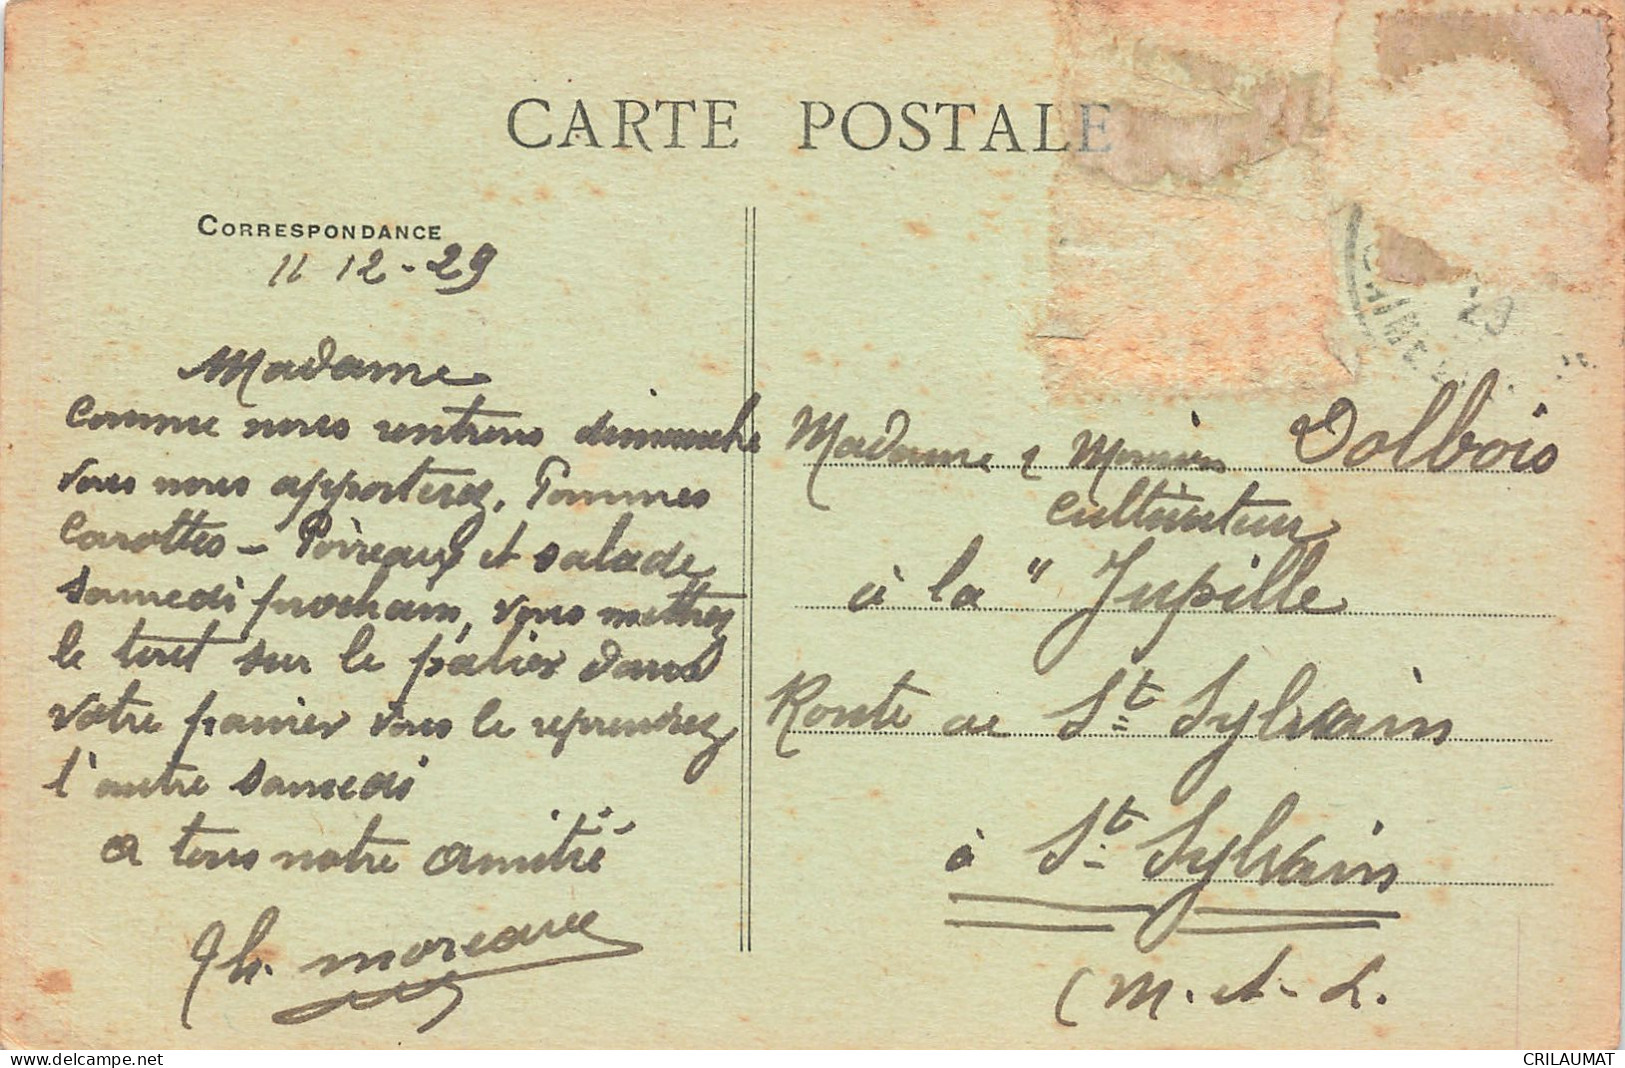 CARTE POSTALE
CORRESPONDANCE
11 12-29
Madame
Comme nous rentrons dimanche
vous nous apporterez, Pommes
Carottes - Poireaux et salade
samedi prochain, vous mettrez
le tout sur le palier dans
votre panier vous le reprendrez
l'autre samedi
a tous notre amitié
Th. Moreau
Madame & Monsieur Dolbois
Cultivateur
à la " Jupille
Route de St Sylvain
à St Sylvain
(M.-et-L.
29
CRILAUMAT